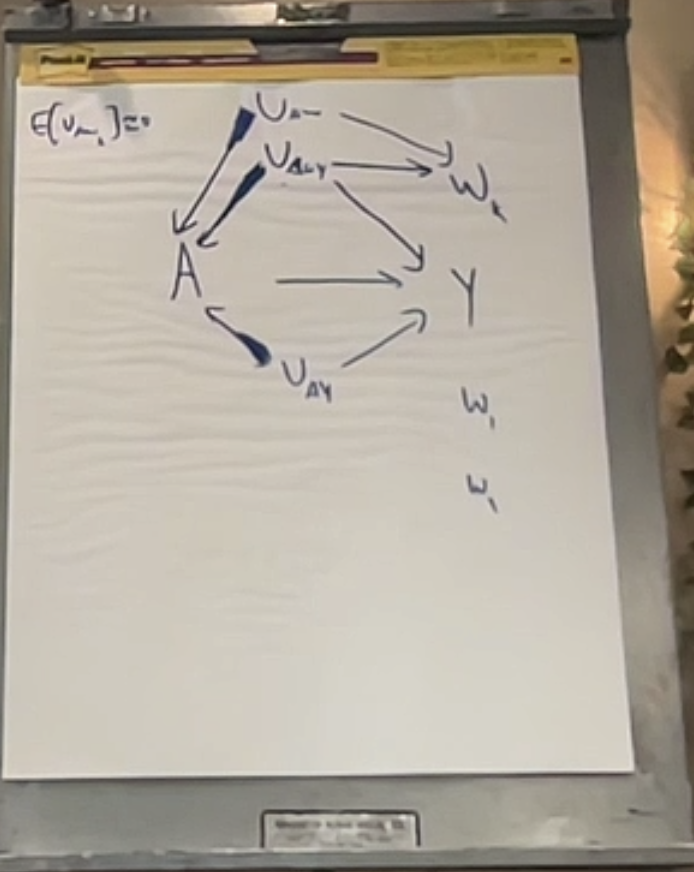 Post-it
U_AW
E[U_AW_1]=0
U_AWY
W_k
A
Y
U_AY
W_1
W_1